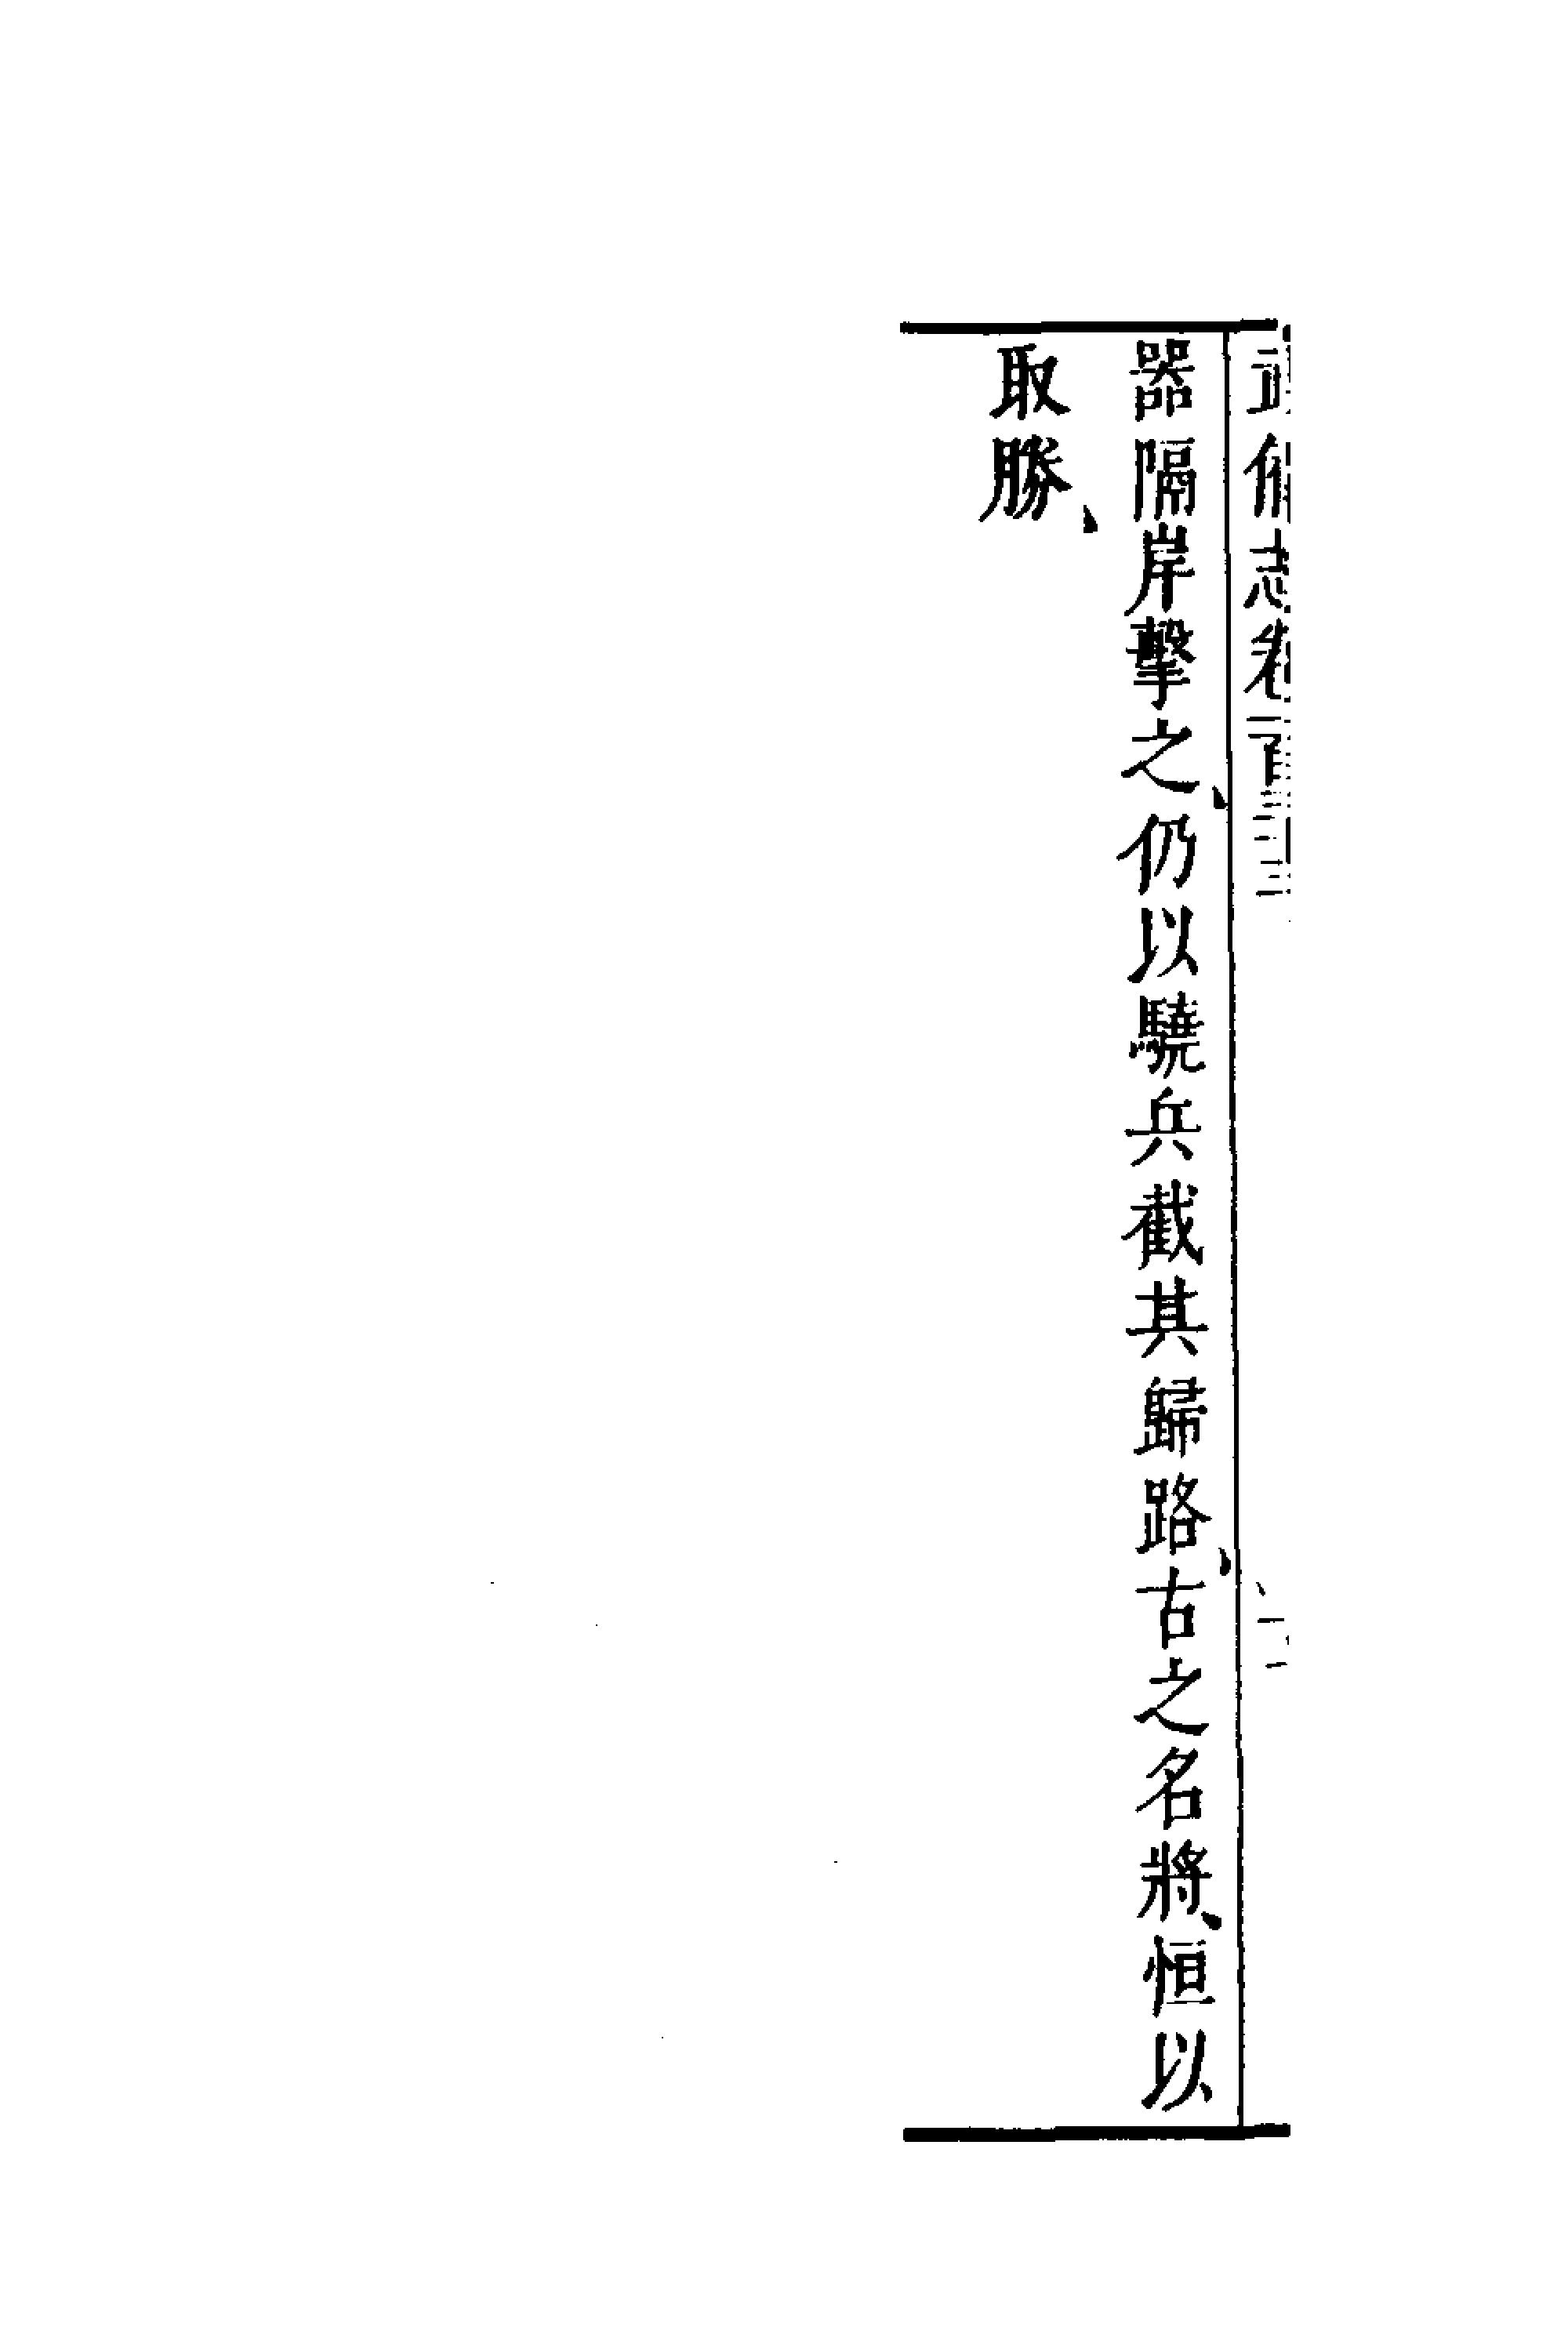 武備志卷一百三十三
器隔岸擊之、仍以驍兵截其歸路、古之名將、恒以
取勝、